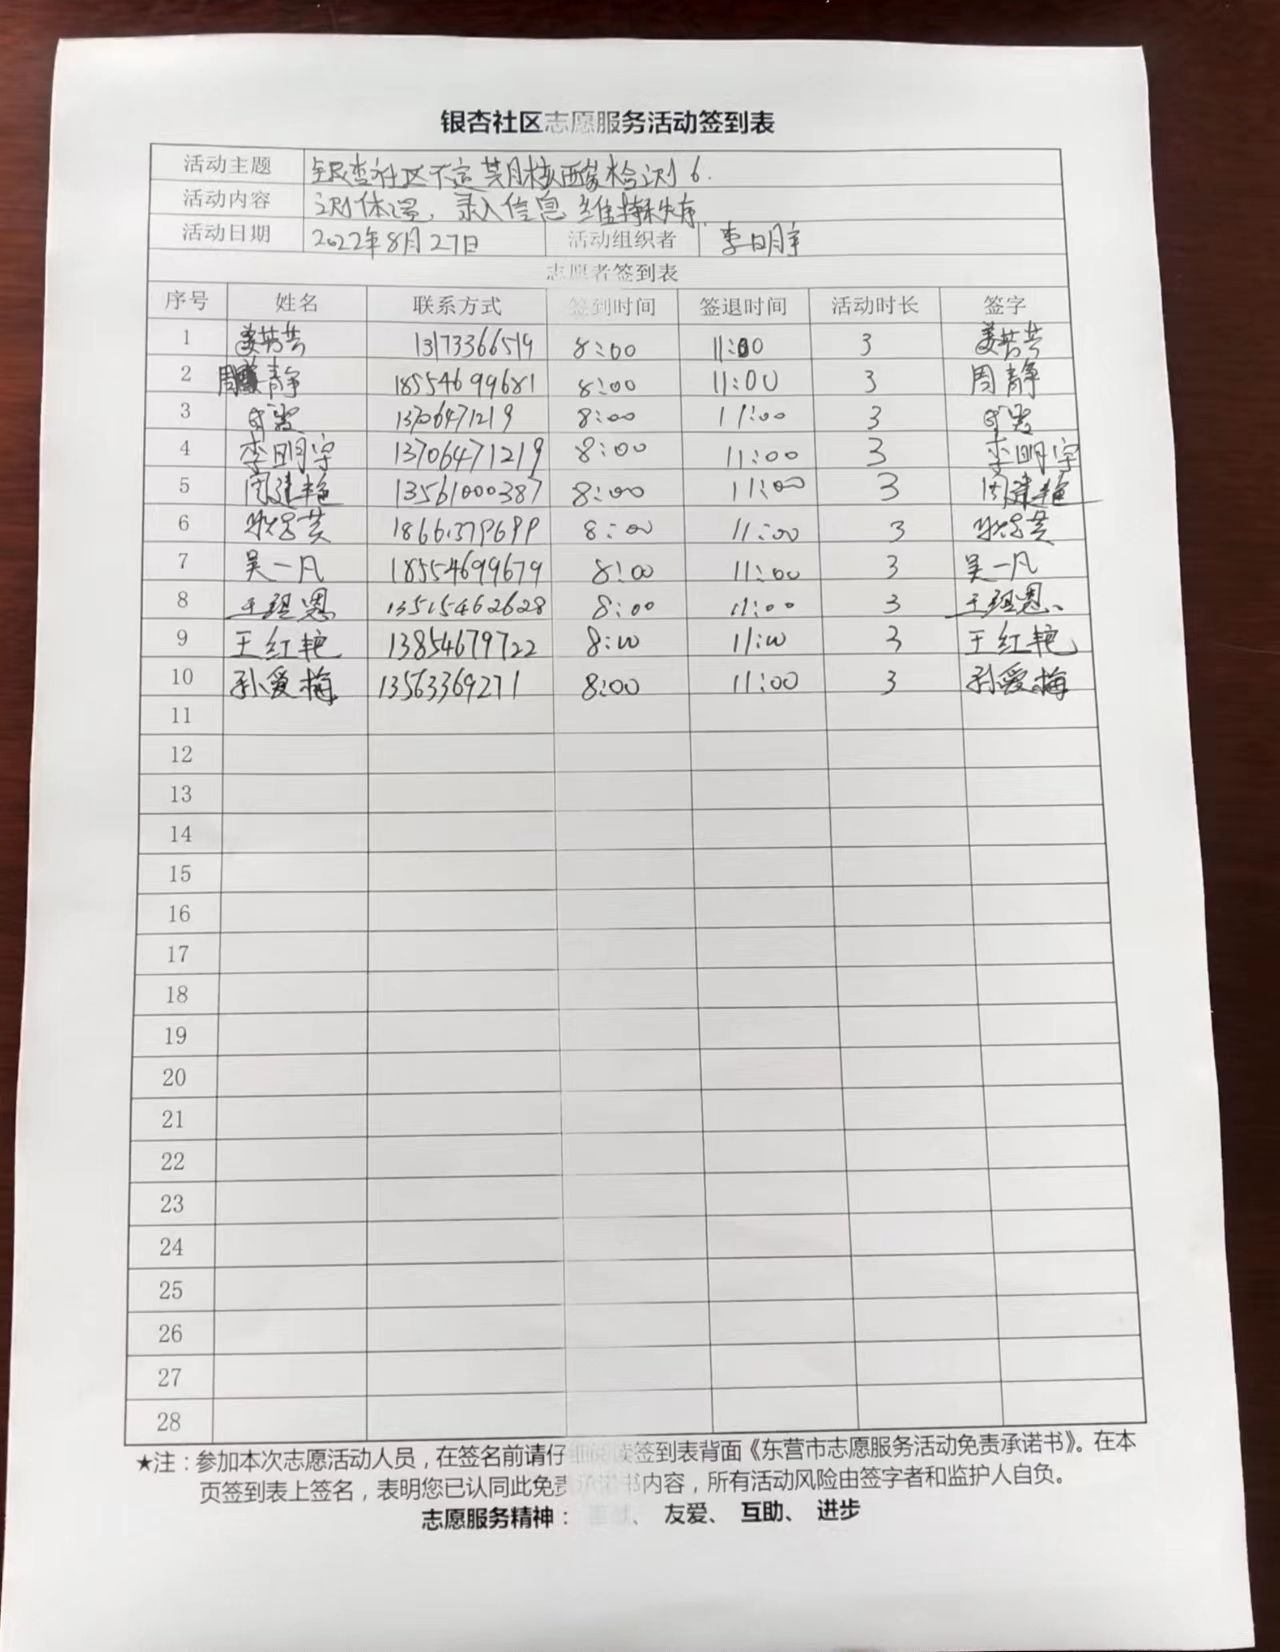 银杏社区志愿服务活动签到表
活动主题 银杏社区不定期核酸检测6.
活动内容 测体温,录入信息 维持秩序
活动日期 2022年8月27日 活动组织者 李明宇
志愿者签到表
序号 姓名 联系方式 签到时间 签退时间 活动时长 签字
1 13173366519 8:00 11:00 3
2 周静 18554699681 8:00 11:00 3 周静
3 13706471219 8:00 11:00 3
4 李明宇 13706471219 8:00 11:00 3 李明宇
5 周建艳 13561000387 8:00 11:00 3 周建艳
6 18661379699 8:00 11:00 3
7 吴一凡 18554699679 8:00 11:00 3 吴一凡
8 王砚恩 13515462628 8:00 11:00 3 王砚恩
9 王红艳 13854679722 8:00 11:00 3 王红艳
10 孙爱梅 13563369271 8:00 11:00 3 孙爱梅
11
12
13
14
15
16
17
18
19
20
21
22
23
24
25
26
27
28
★注：参加本次志愿活动人员，在签名前请仔细阅读签到表背面《东营市志愿服务活动免责承诺书》。在本
页签到表上签名，表明您已认同此免责承诺书内容，所有活动风险由签字者和监护人自负。
志愿服务精神： 、 友爱、 互助、 进步